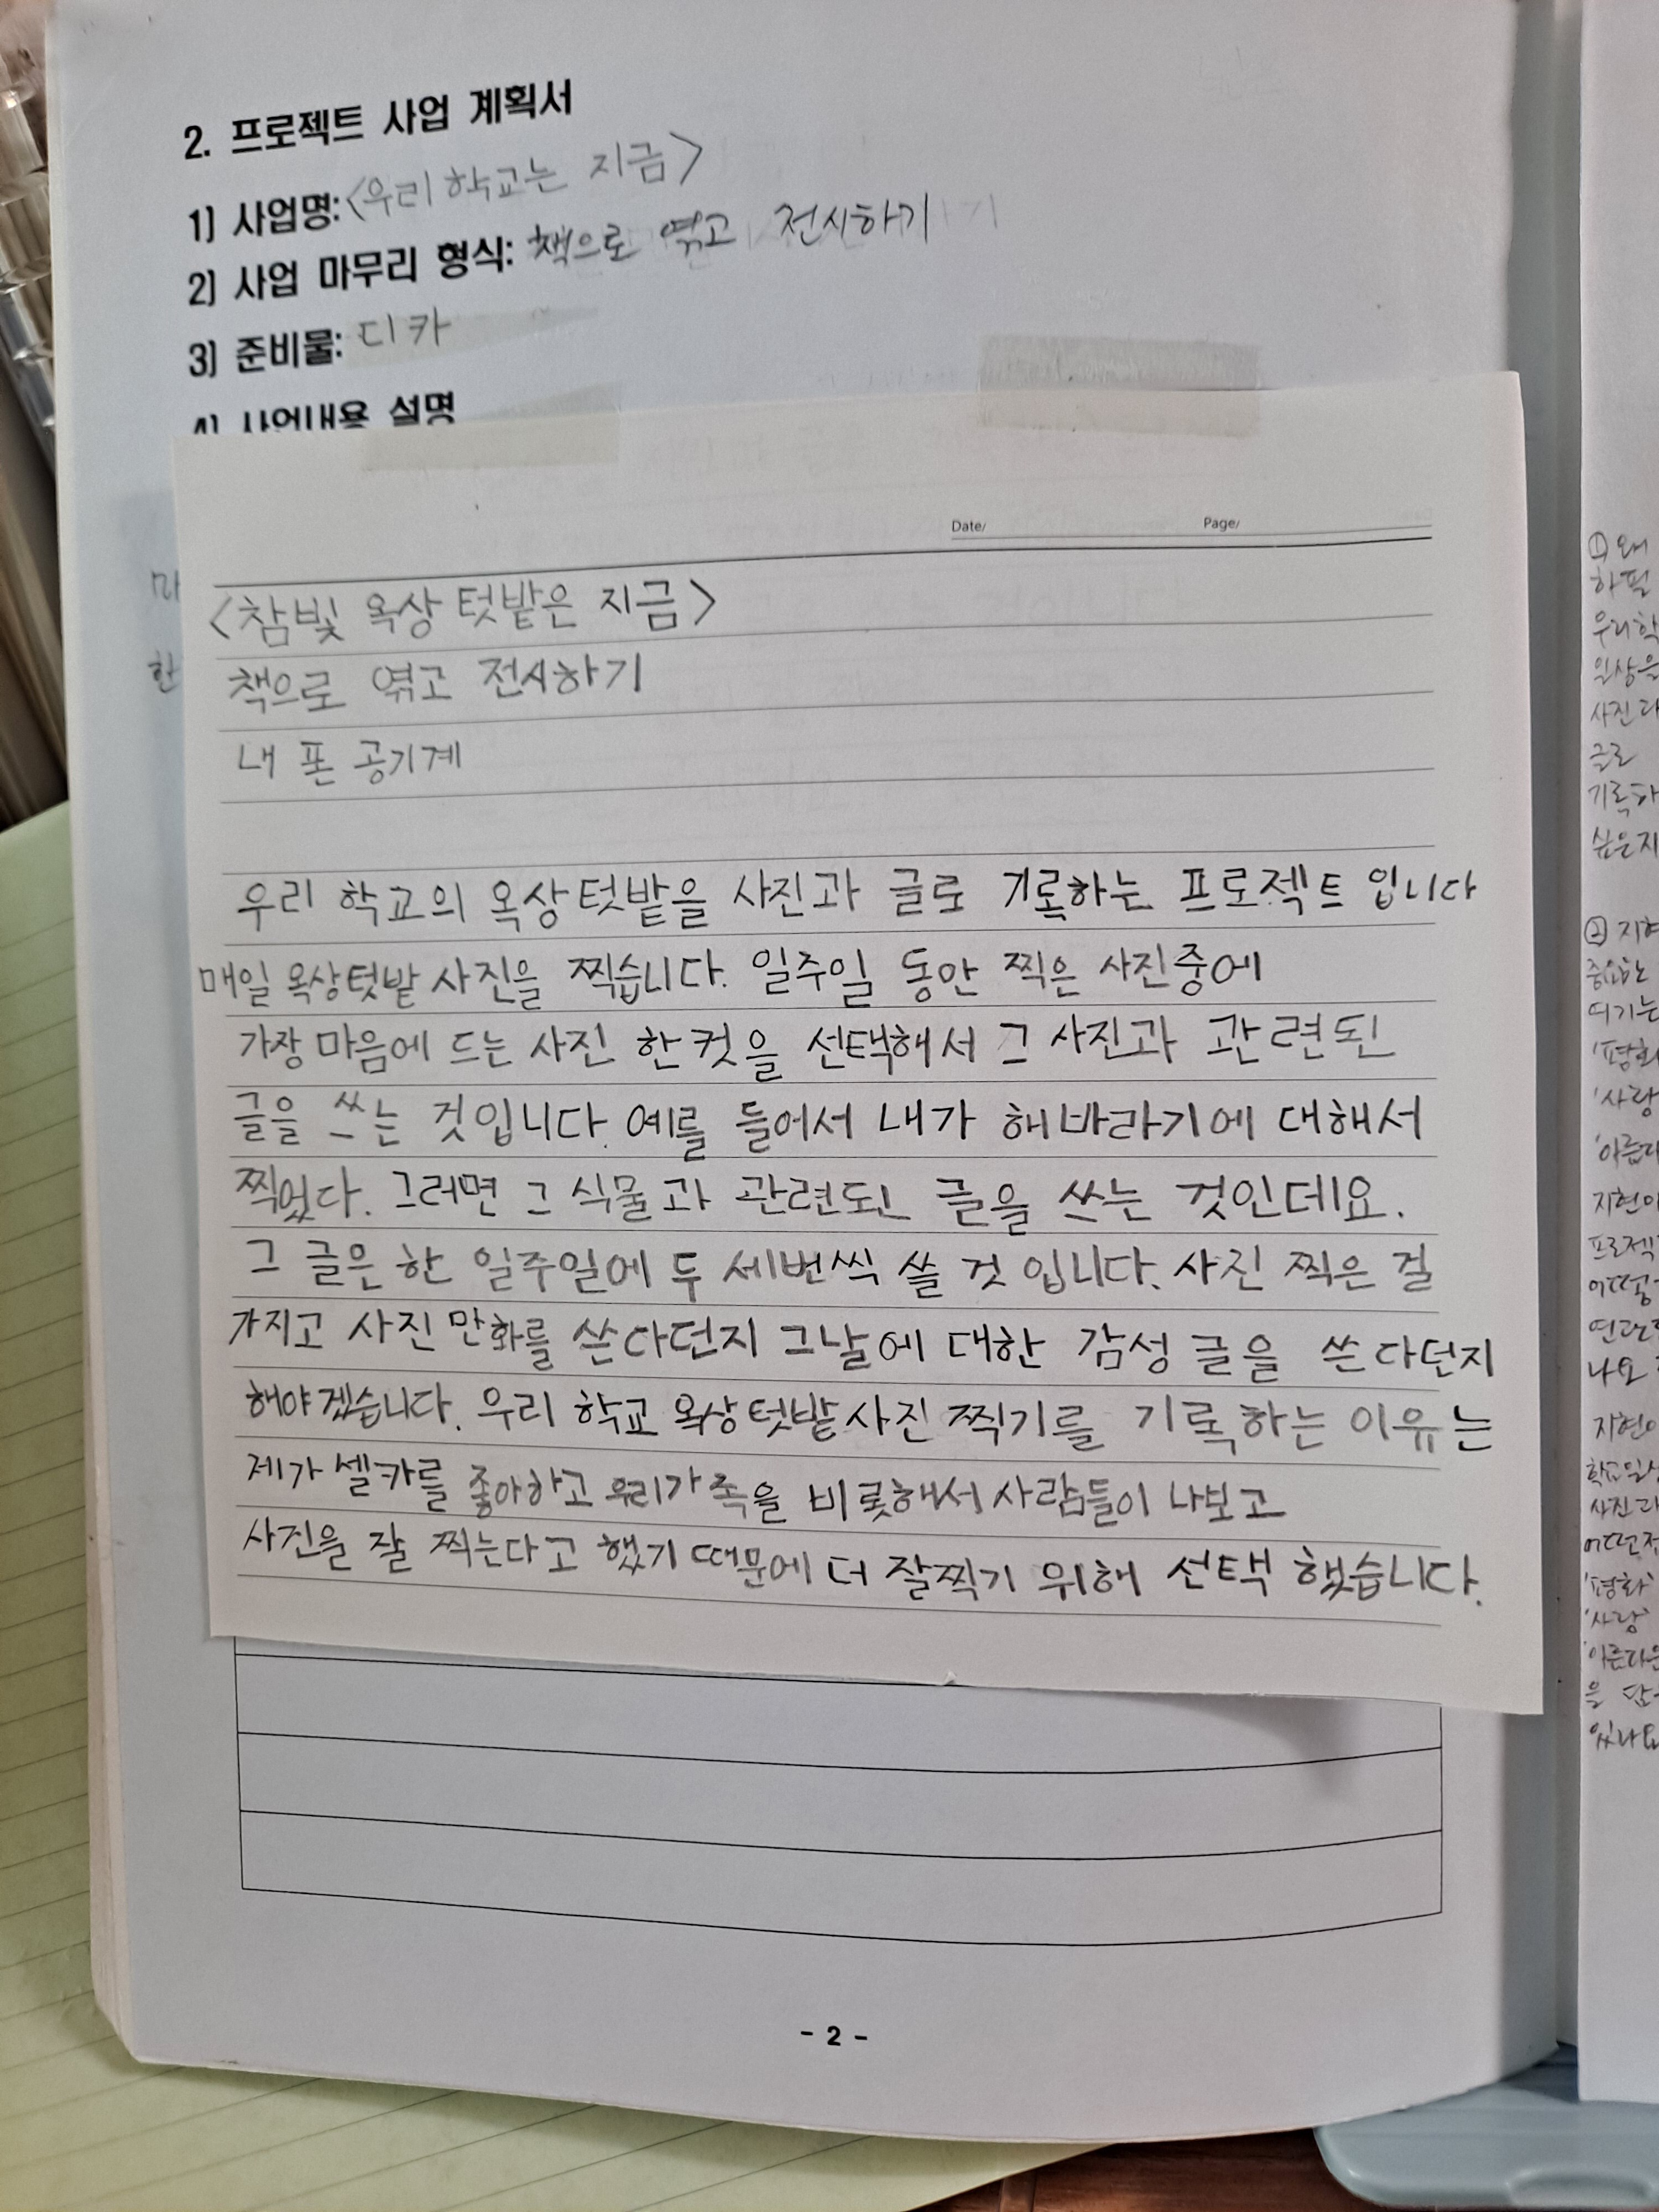 2. 프로젝트 사업 계획서
1) 사업명: <우리 학교는 지금>
2) 사업 마무리 형식: 책으로 엮고 전시하기
3) 준비물: 디카
4) 사업내용 설명
Date/ Page/
<참빛 옥상 텃밭은 지금>
책으로 엮고 전시하기
내 폰 공기계
우리 학교의 옥상텃밭을 사진과 글로 기록하는 프로젝트 입니다
매일 옥상텃밭 사진을 찍습니다. 일주일 동안 찍은 사진중에
가장 마음에 드는 사진 한컷을 선택해서 그 사진과 관련된
글을 쓰는 것입니다. 예를 들어서 내가 해바라기에 대해서
찍었다. 그러면 그 식물과 관련된 글을 쓰는 것인데요.
그 글은 한 일주일에 두 세번씩 쓸 것 입니다. 사진 찍은 걸
가지고 사진 만화를 쓴다던지 그날에 대한 감성 글을 쓴다던지
해야겠습니다. 우리 학교 옥상텃밭 사진 찍기를 기록하는 이유는
제가 셀카를 좋아하고 우리가족을 비롯해서 사람들이 나보고
사진을 잘 찍는다고 했기 때문에 더 잘찍기 위해 선택 했습니다.
마
한
- 2 -
① 왜
하필
우리학
일상을
사진과
글로
기록하
싶은지
② 지현
중요한
여기는
'평화
'사랑
'아름다
지현이
프로젝
어떻게
연관
나요
지현이
학교일상
사진과
어떤점
'평화'
'사랑'
'아름다운
을 담
있나요